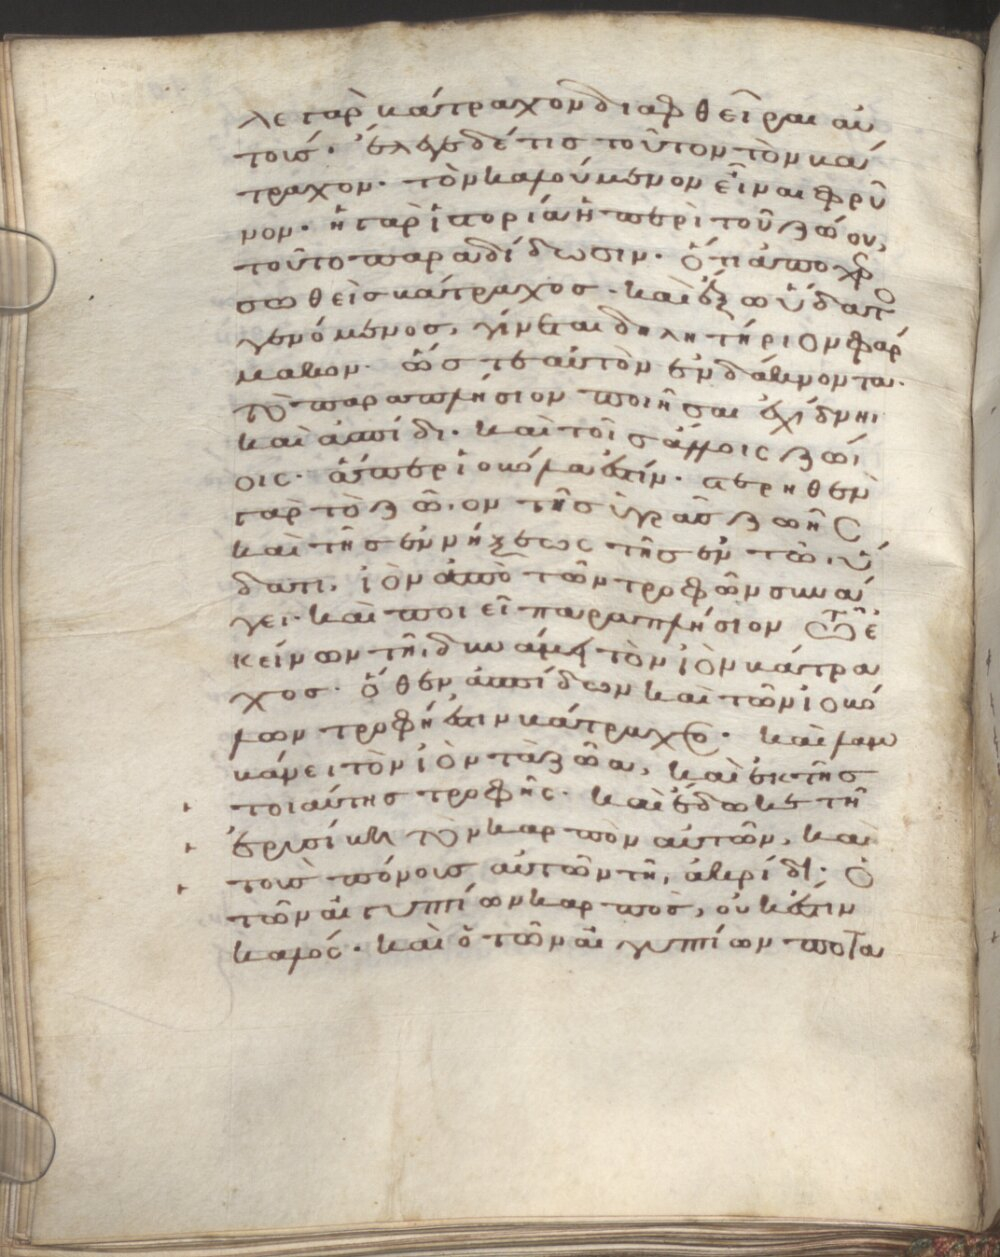 λε γὰρ βάτραχον διαφθεῖραι αὐ
τούς· ἔλεγε δέ τις τοῦτον τὸν βά
τραχον· τὸν καλούμενον εἶναι φρῦ
νον· ἡ γὰρ ἱστορία ἡ περὶ τοῦ ζώου,
τοῦτο παραδίδωσιν· ὅτι ἀπο χερ
σωθεὶς βάτραχος· καὶ ἔξω ὕδατο
γενόμενος, γίνεται δηλητήριον φάρ
μακον· ὥς τε αὐτὸν ἐνδάκνοντα.
τὸ παραπλήσιον ποιῆσαι ἐχίδνηι
καὶ ἀσπίδι· καὶ τοῖς ἄλλοις ζώι
οις· ἅπερ ἰοβόλα ἐστίν· στερηθὲν
γὰρ τὸ ζῶιον τῆς ὑγρᾶς ζωῆς
καὶ τῆς ἐν νήξεως τῆς ἐν τῶι ὕ
δατι, ἰὸν ἀπὸ τῶν τροφῶν συνά
γει· καὶ ποιεῖ παραπλήσιον τῶ ἐ
κείνων τῆι δυνάμει τὸν ἰὸν βάτρα
χος· ὅθεν ἀσπίδων καὶ τῶν ἰοβό
λων τροφή ἐστιν βάτραχος· καὶ λαμ
βάνει τὸν ἰὸν τὰ ζῶα, καὶ ἐκ τῆς
τοιαύτης τροφῆς· καὶ ἔδωκε τῆ
ἐρισίβη τὸν καρπὸν αὐτῶν, καὶ
τοὺς πόνους αὐτῶν τῆι ἀκρίδι· ὁ
τῶν αἰγυπτίων καρπὸς, οὐκ ἔστιν
καλός· καὶ ὁ τῶν αἰγυπτίων ποτα